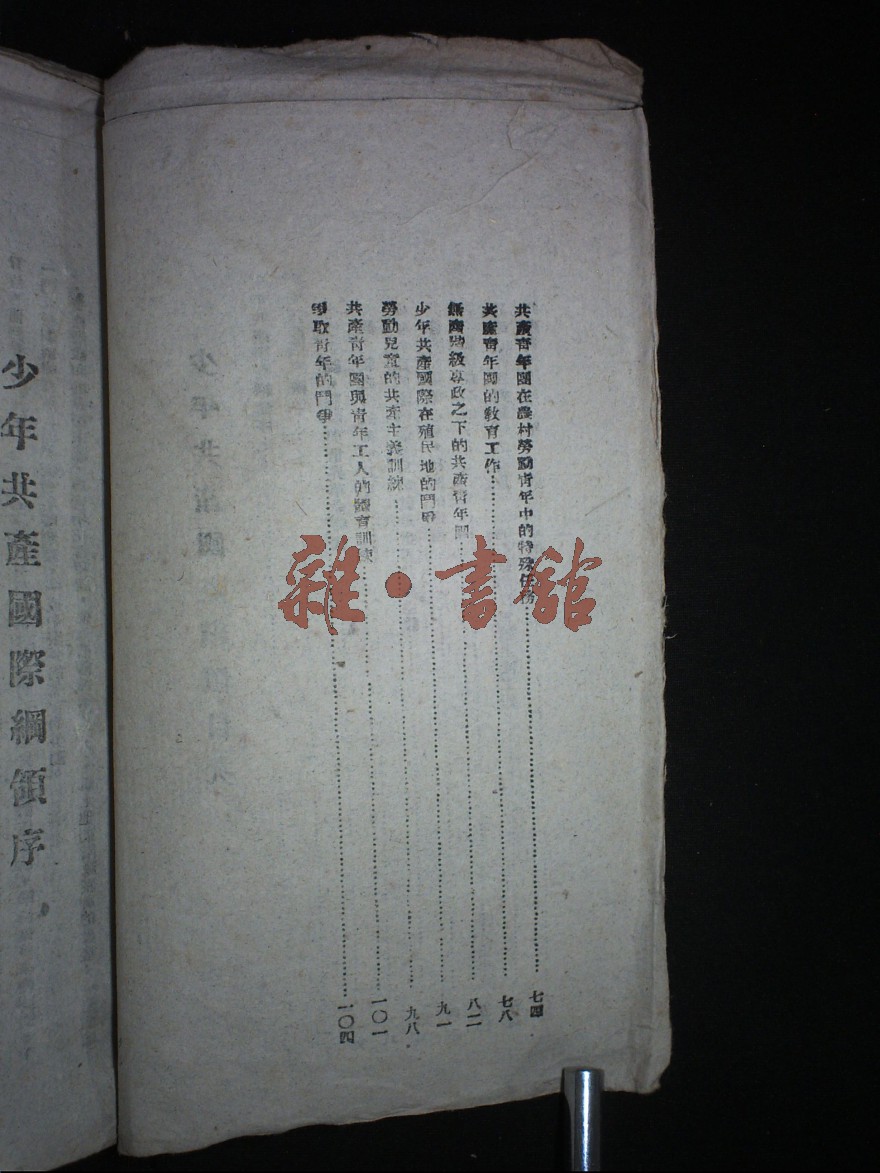 共產青年團在農村勞動青年中的特殊任務……七四
共產青年團的敎育工作……七八
無產階級專政之下的共產青年團……八二
少年共產國際在殖民地的鬥爭……九一
勞動兒童的共產主義訓練……九八
共產青年團與青年工人的體育訓練……一〇一
爭取青年的鬥爭……一〇四
少年共產國際綱領序
雜·書舘